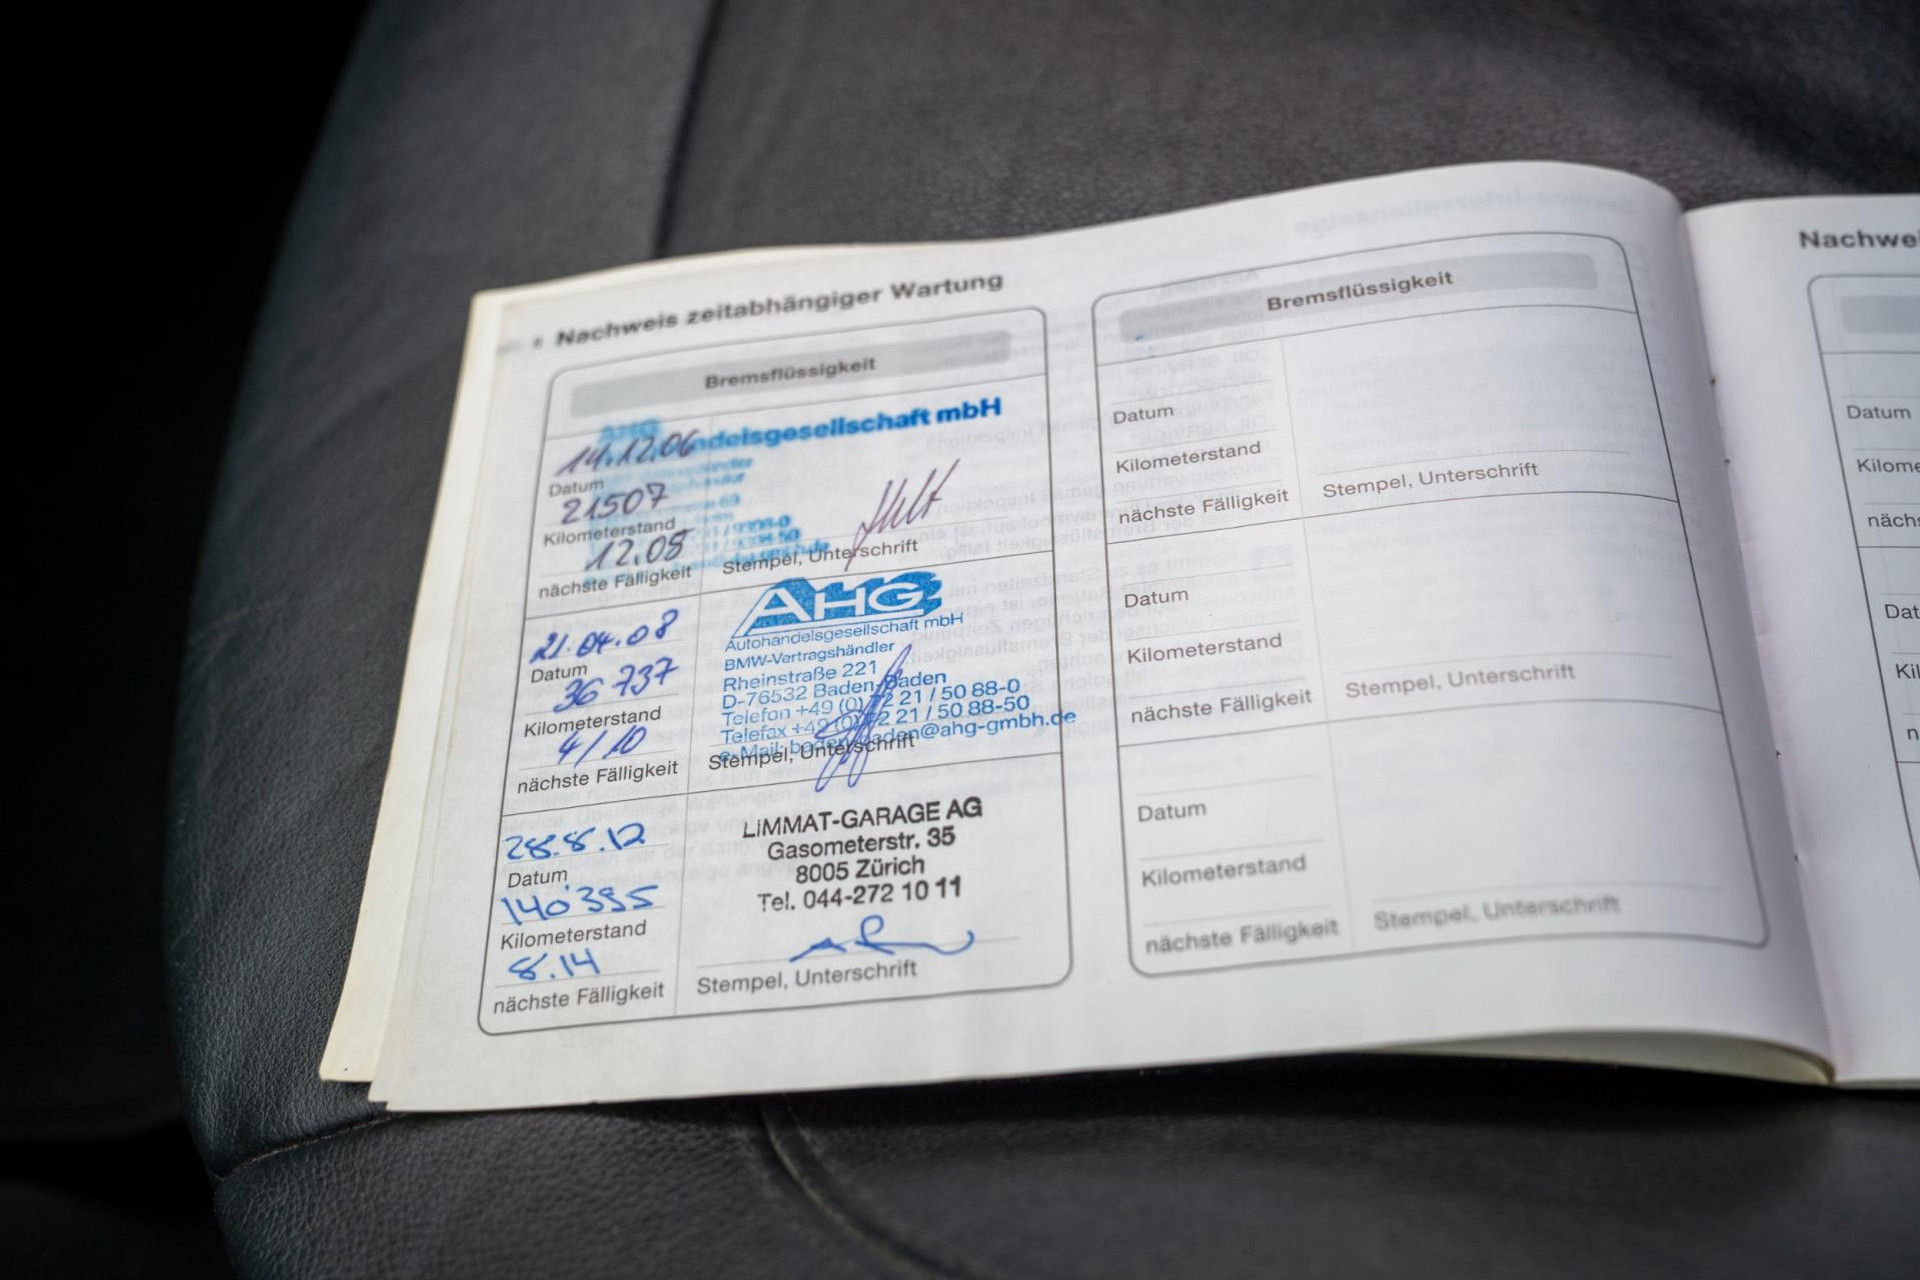 Nachweis zeitabhängiger Wartung
Bremsflüssigkeit
AHG
ndelsgesellschaft mbH
14.12.06
Datum
21507
Kilometerstand
12.08
nächste Fälligkeit
Stempel, Unterschrift
21.04.08
Datum
36 737
Kilometerstand
4/10
nächste Fälligkeit
AHG
Autohandelsgesellschaft mbH
BMW-Vertragshändler
Rheinstraße 221
D-76532 Baden-Baden
Telefon +49 (0) 72 21 / 50 88-0
Telefax +49 (0) 72 21 / 50 88-50
e-Mail: baden-baden@ahg-gmbh.de
Stempel, Unterschrift
28.8.12
Datum
140'395
Kilometerstand
8.14
nächste Fälligkeit
LIMMAT-GARAGE AG
Gasometerstr. 35
8005 Zürich
Tel. 044-272 10 11
Stempel, Unterschrift
Bremsflüssigkeit
Datum
Kilometerstand
nächste Fälligkeit
Stempel, Unterschrift
Datum
Kilometerstand
nächste Fälligkeit
Stempel, Unterschrift
Datum
Kilometerstand
nächste Fälligkeit
Stempel, Unterschrift
Nachwei
Datum
Kilome
nächs
Dat
Kil
n